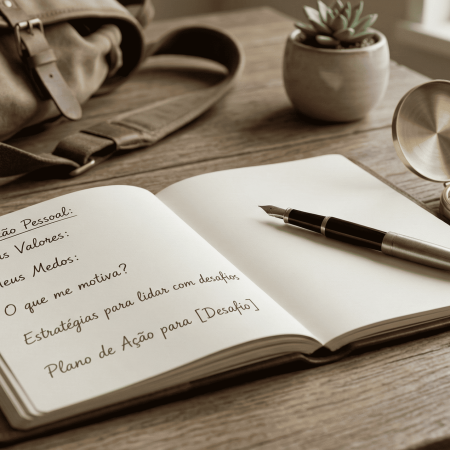 ão Pessoal:
s Valores:
eus Medos:
O que me motiva?
Estratégias para lidar com desafios
Plano de Ação para [Desafio]